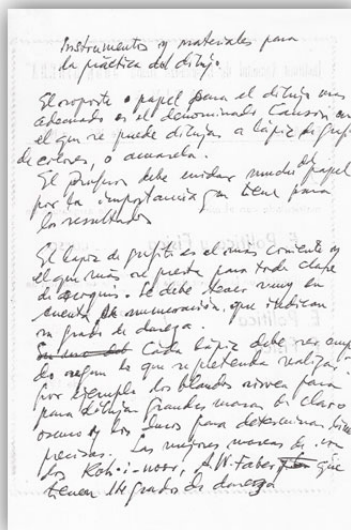 Instrumentos y materiales para
la práctica del dibujo.
El soporte o papel para el dibujo mas
adecuado es el denominado Canson en
el que se puede dibujar a lápiz de grafi
de colores, o acuarela.
El Profesor debe cuidar mucho del papel
por la importancia que tiene para
los resultados
El lapiz de grafito es el mas corriente y
el que más se presta para toda clase
de croquis. Se debe tener muy en
cuenta su numeración, que indican
su grado de dureza.
Cada lápiz debe ser emp
do segun lo que se pretenda realizar,
por ejemplo los blandos sirven para
para dibujar grandes masas de claro
oscuro y los duros para determinar line
precisas. Las mejores marcas de son
los Koh-i-noor, A.W. Faber que
tienen su grados de dureza
E Politica y Fisica
E Politica